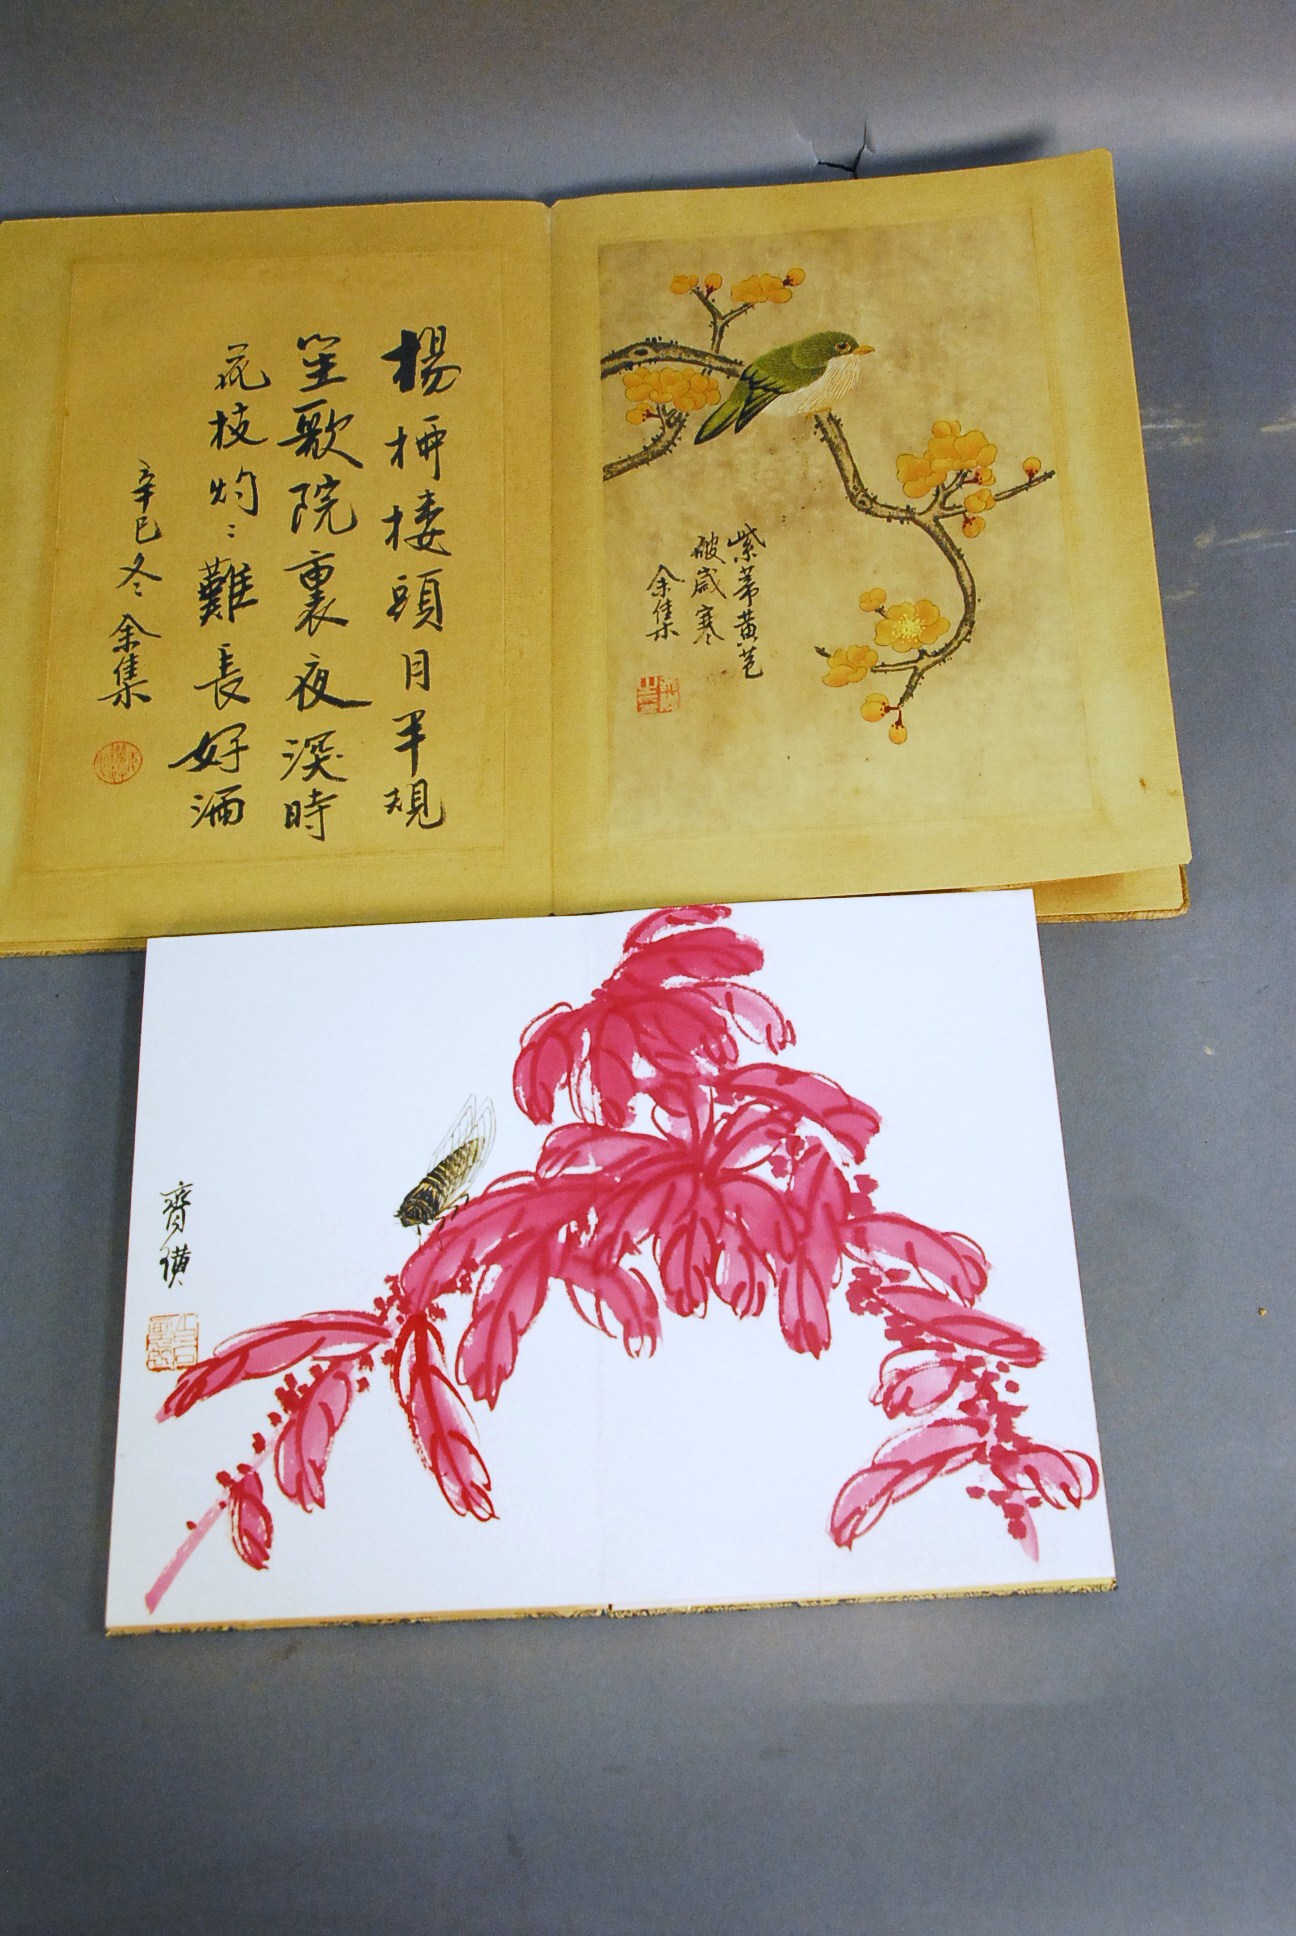 楊柳樓頭月半規
笙歌院裏夜深時
花枝灼〻難長好
辛巳冬余集
紫蒂黃苞
破歲寒
余集
齊璜